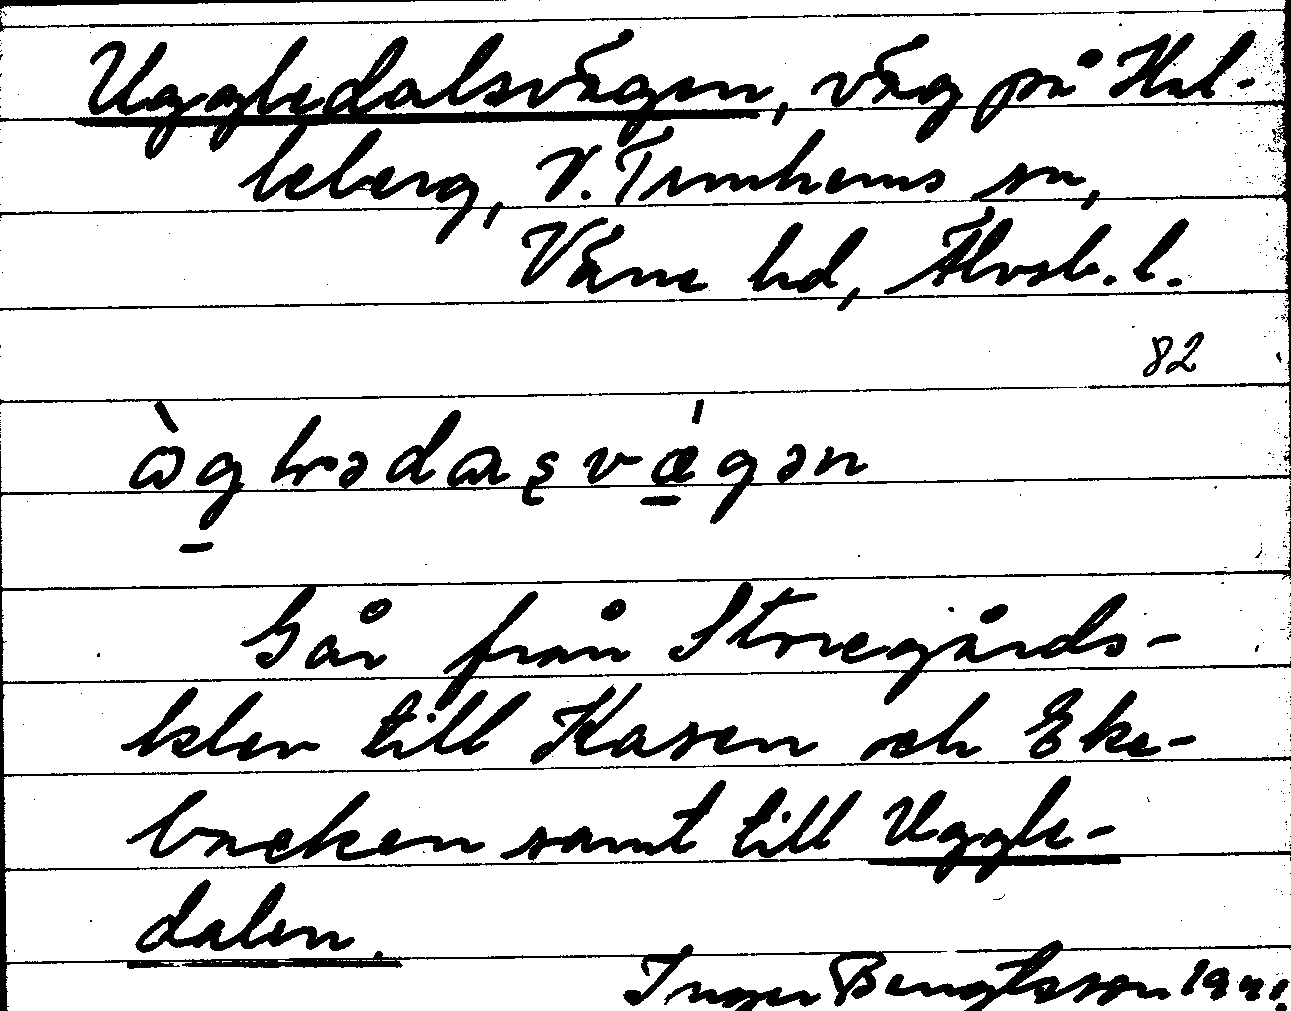 Uggledalsvägen, väg på Hul-
leberg, V. Tunhems sn,
Väne hd, Älvsb. l.
82
Går från Storegårds-
klev till Kasen och Eke-
backen samt till Uggle-
dalen.
Inger Bengtsson 1941.